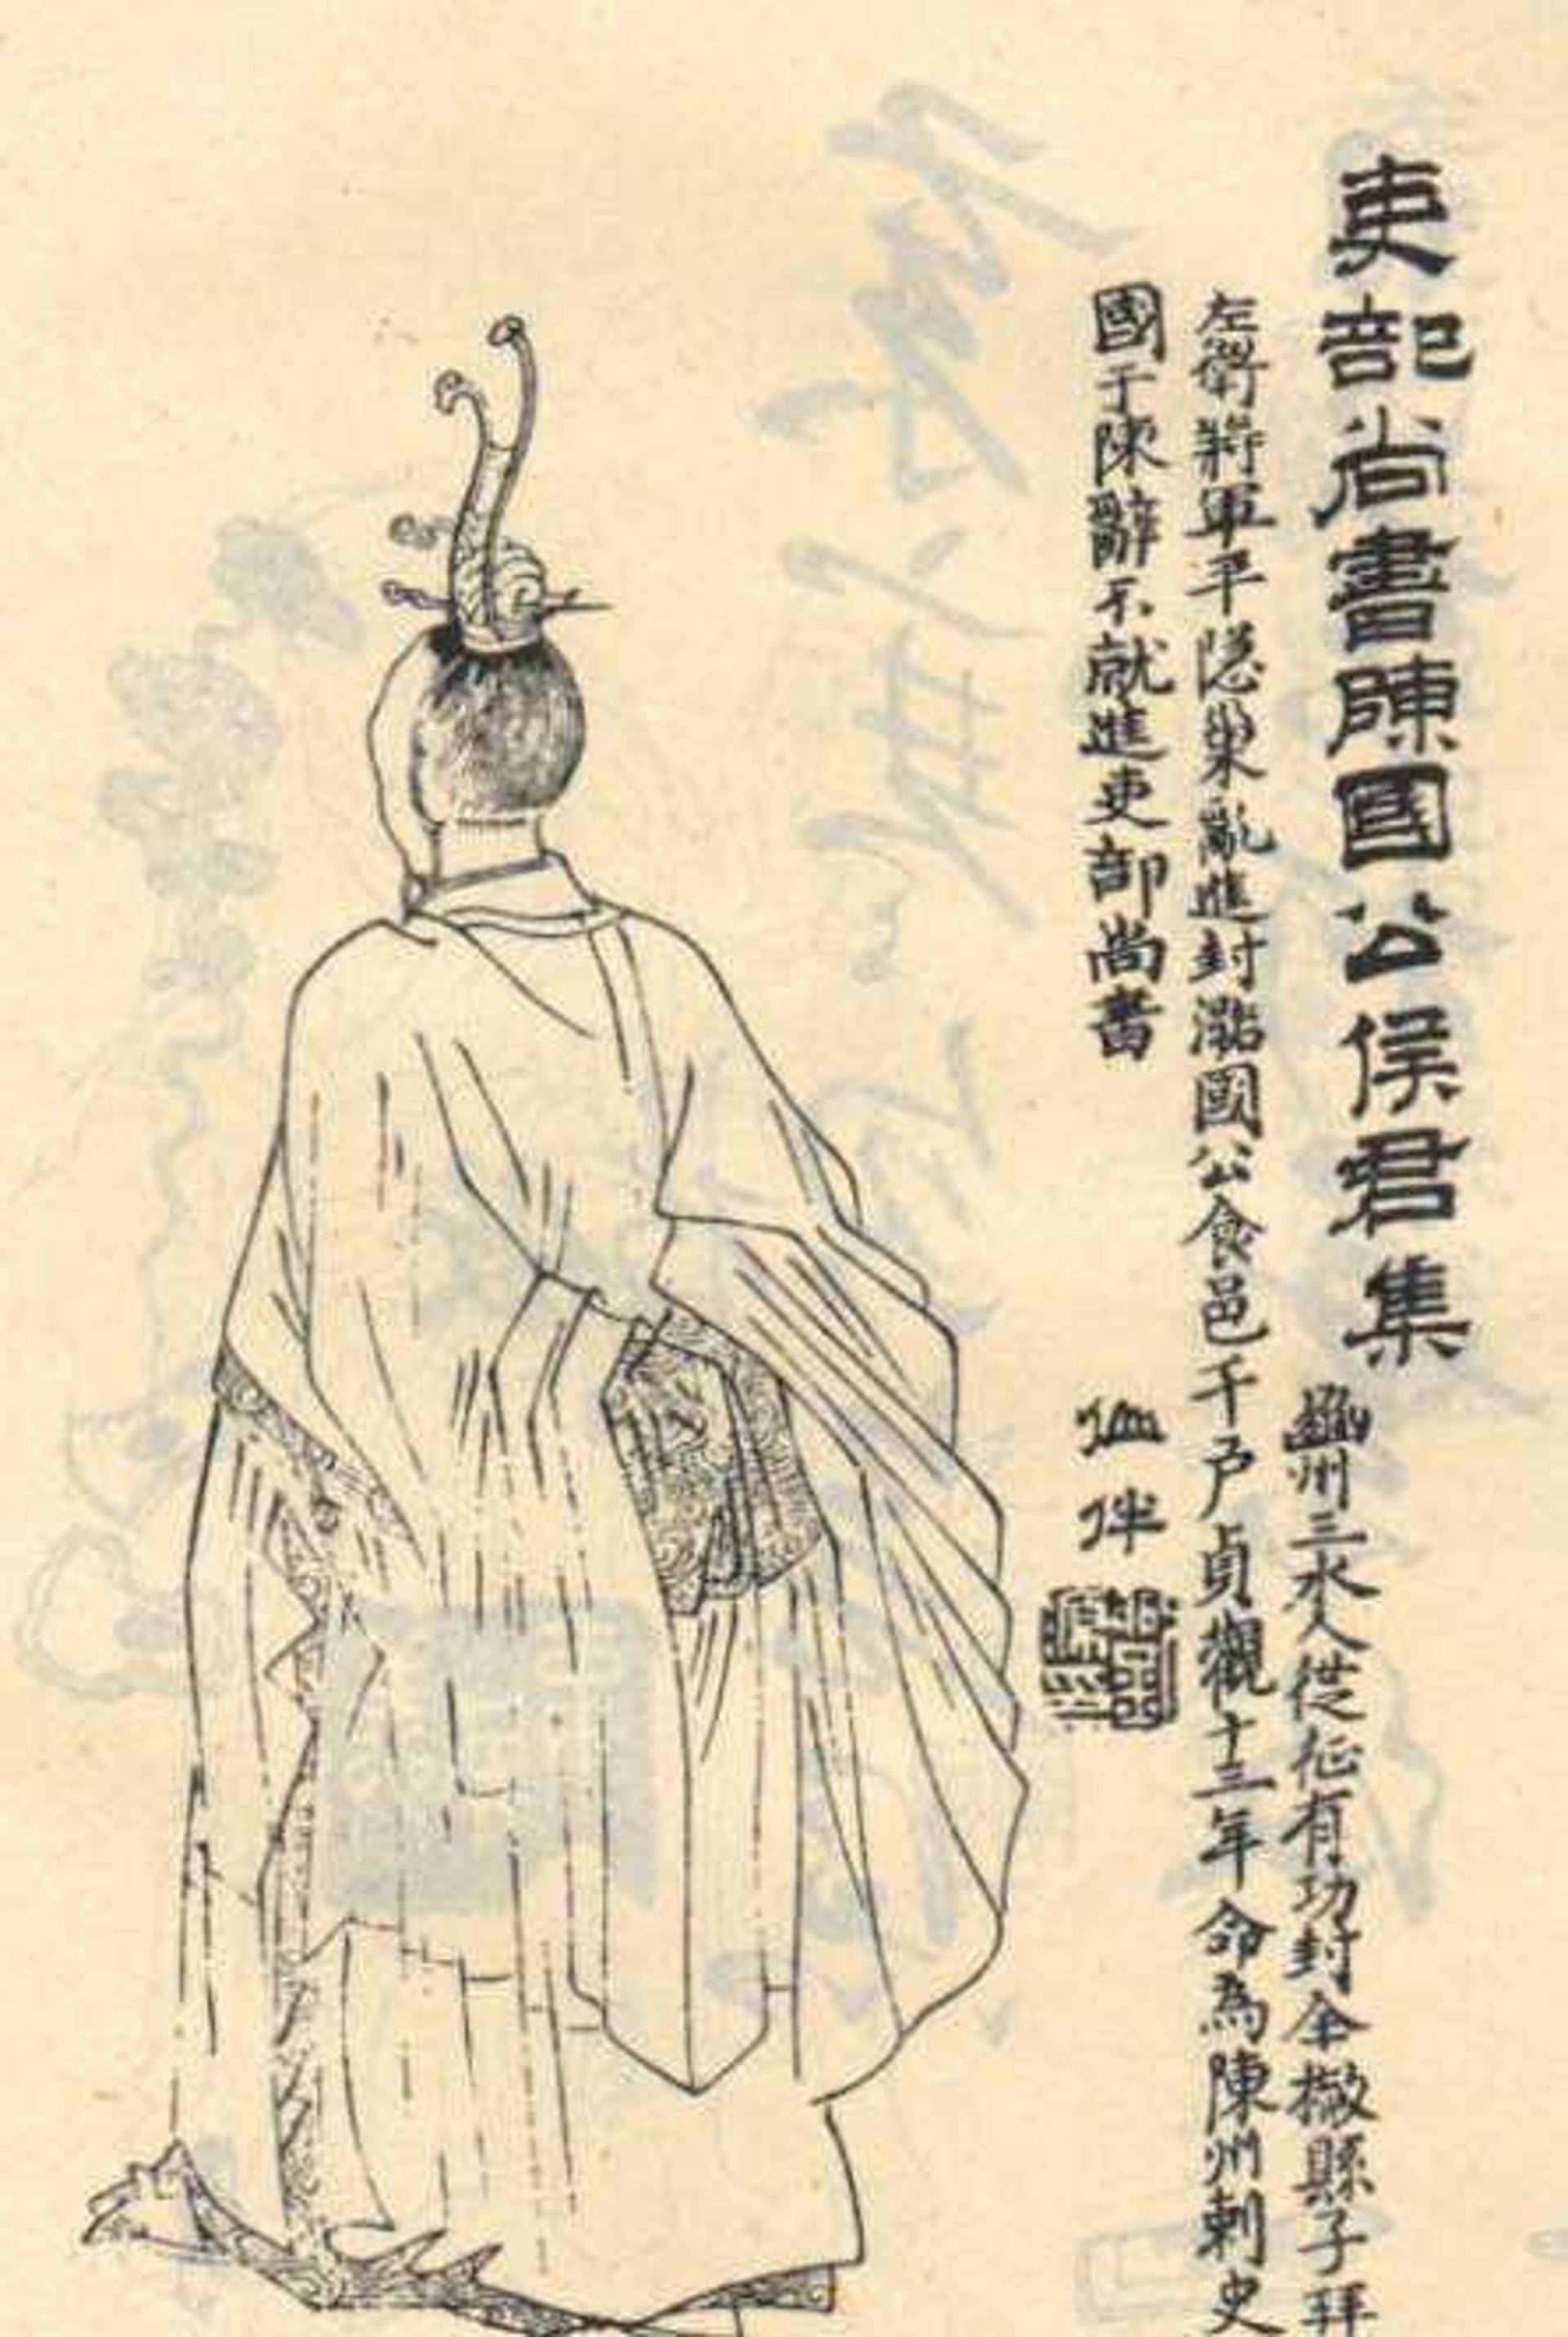 吏部尚書陳國公侯君集
豳州三水人從征有功封全椒縣子拜
左衛將軍平隱巢亂進封潞國公食邑千戶貞觀十三年命為陳州刺史
國于陳辭不就進吏部尚書
伴